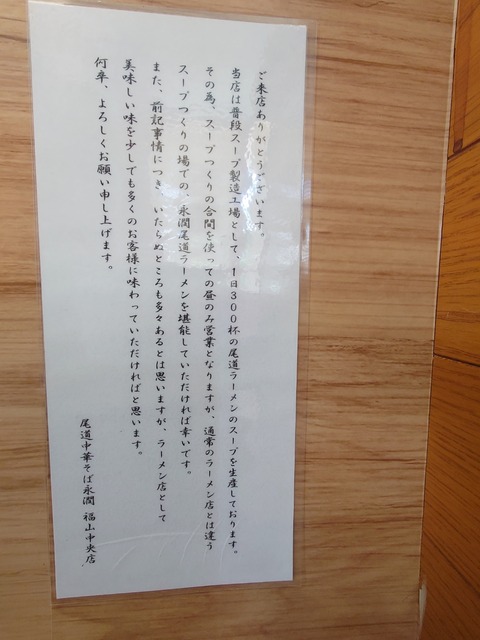 ご来店ありがとうございます。
当店は普段スープ製造工場として、1日300杯の尾道ラーメンのスープを生産しております。
その為、スープつくりの合間を使っての昼のみ営業となりますが、通常のラーメン店とは違う
スープつくりの場での、永潤尾道ラーメンを堪能していただければ幸いです。
また、前記事情につき、いたらぬところも多々あるとは思いますが、ラーメン店として
美味しい味を少しでも多くのお客様に味わっていただければと思います。
何卒、よろしくお願い申し上げます。
尾道中華そば永潤 福山中央店